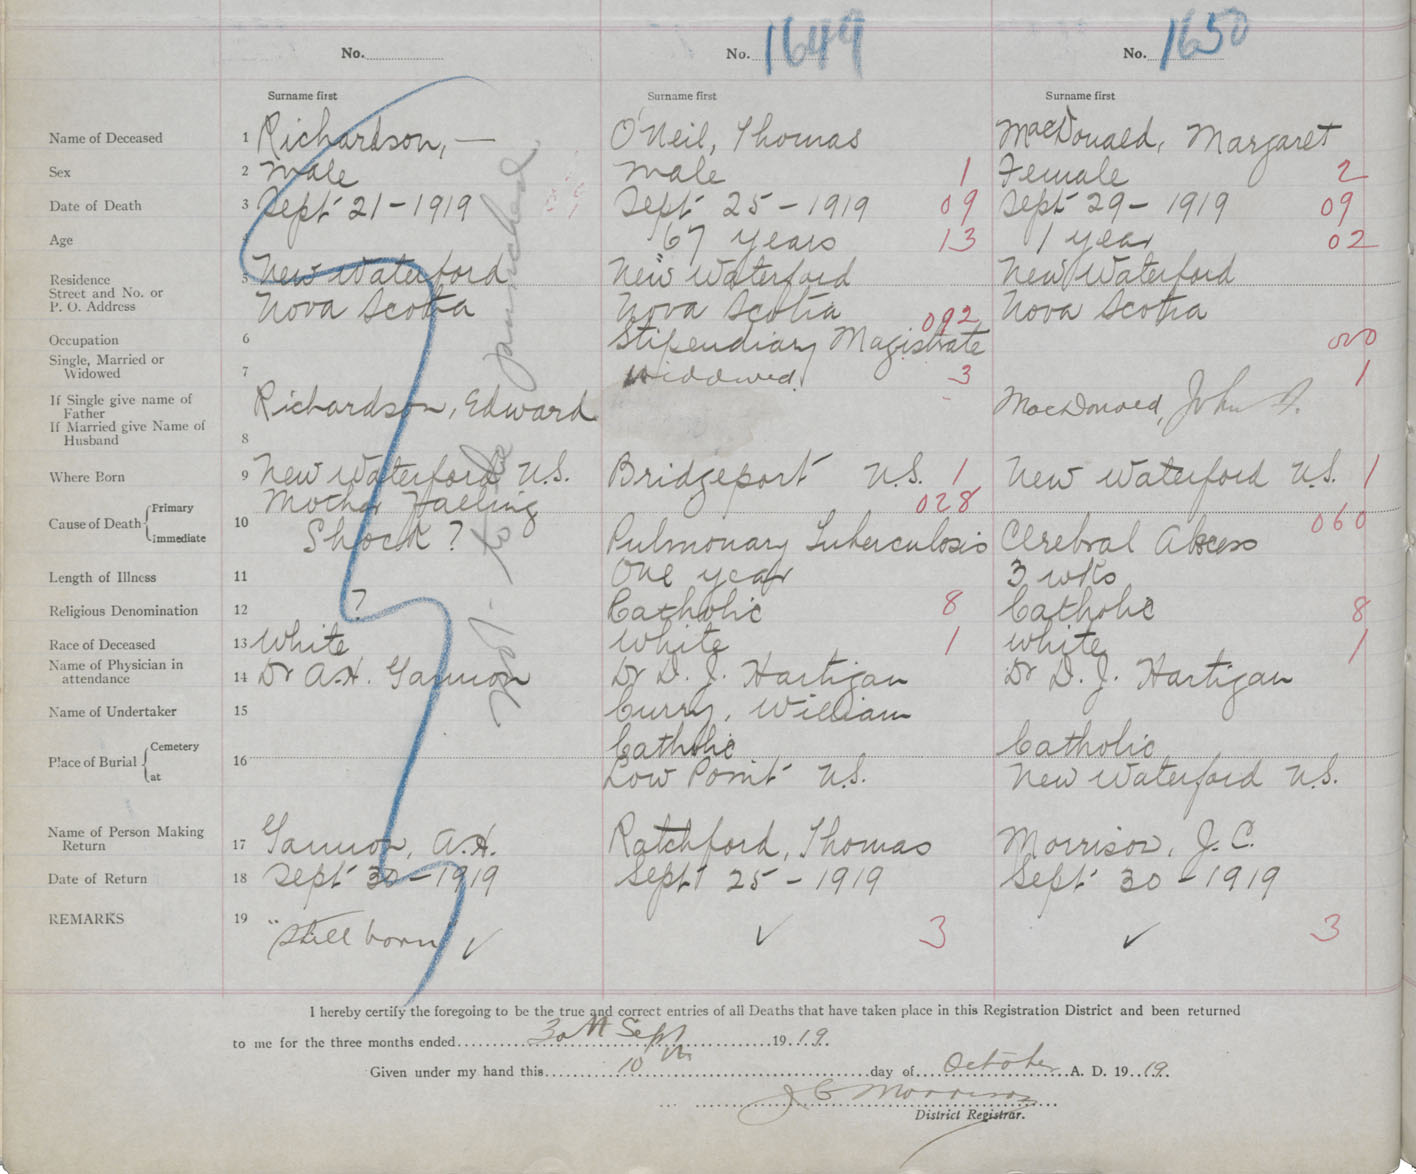 No. No. 1649 No. 1650
Surname first Surname first Surname first
Name of Deceased 1 Richardson, — O'Neil, Thomas MacDonald, Margaret
Sex 2 Male Male 1 Female 2
Date of Death 3 Sept 21 - 1919 Sept 25 - 1919 09 Sept 29 - 1919 09
Age 4 67 years 13 1 year 02
Residence
Street and No. or
P. O. Address
5 New Waterford New Waterford New Waterford
Nova Scotia Nova Scotia Nova Scotia
Occupation 6 Stipendiary Magistrate 092 000
Single, Married or
Widowed 7 Widowed. 3 1
If Single give name of
Father
If Married give Name of
Husband 8 Richardson, Edward MacDonald, John A.
Where Born 9 New Waterford N.S. Bridgeport N.S. 1 New Waterford N.S. 1
Cause of Death Primary Immediate 10 Mother Falling 028 060
Shock ? Pulmonary Tuberculosis Cerebral Abscess
Length of Illness 11 One year 3 wks
Religious Denomination 12 ? Catholic 8 Catholic 8
Race of Deceased 13 White White 1 White 1
Name of Physician in
attendance 14 Dr A.H. Gannon Dr D. J. Hartigan Dr D. J. Hartigan
Name of Undertaker 15 Curry, William
Place of Burial Cemetery at 16 Catholic Catholic
Low Point N.S. New Waterford N.S.
Name of Person Making
Return 17 Gannon, A.H. Ratchford, Thomas Morrison, J. C.
Date of Return 18 Sept 30 - 1919 Sept 25 - 1919 Sept 30 - 1919
REMARKS 19 "Still born" ✓ ✓ 3 ✓ 3
Not to be punched
I hereby certify the foregoing to be the true and correct entries of all Deaths that have taken place in this Registration District and been returned
to me for the three months ended 30th Sept 1919.
Given under my hand this 10th day of October A. D. 1919.
J C Morrison
District Registrar.